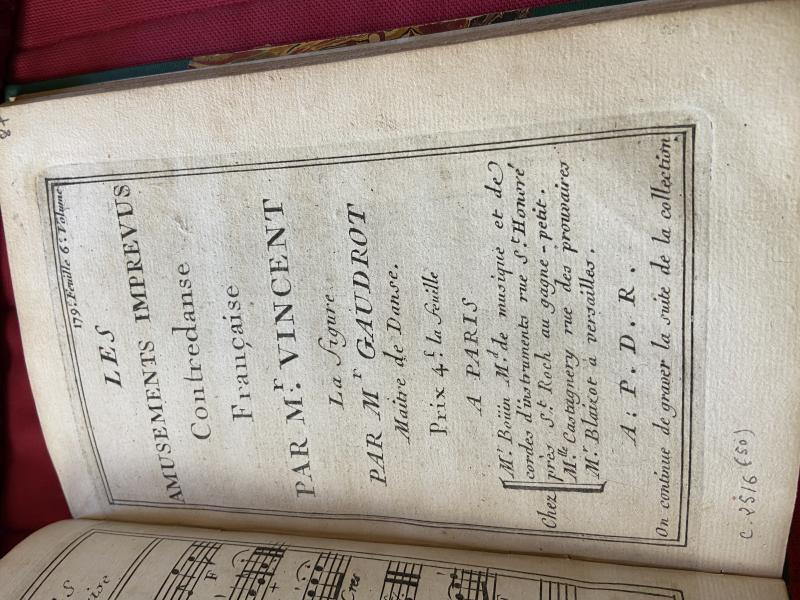 179.e Feuille 6.e Volume
LES
AMUSEMENTS IMPREVUS
Contredanse
Française
PAR M.r VINCENT
La figure
PAR M.r GAUDROT
Maitre de Danse.
Prix 4.f la feuille
A PARIS
Chez
M.r Boüin M.d de musique et de
cordes d'instruments rue S.t Honoré
près S.t Roch au gagne-petit.
M.lle Castagnery rue des prouvaires
M.r Blaizot à versailles.
A. P. D. R.
On continue de graver la suite de la collection
c. 2516 (50)